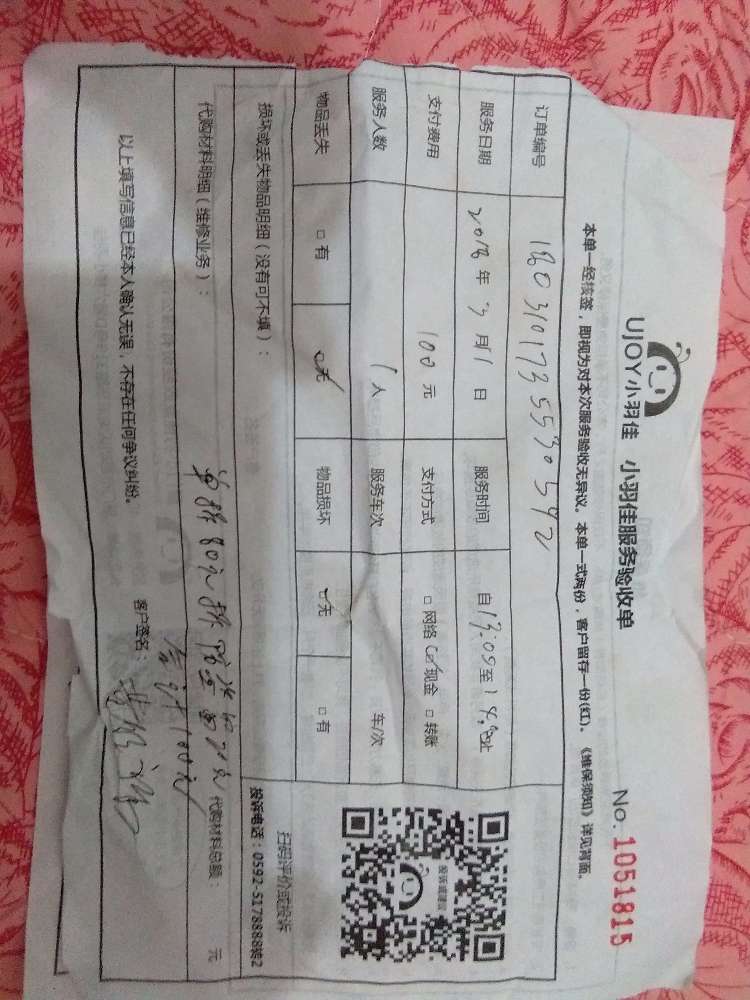 UJOY小羽佳 小羽佳服务验收单 No. 1051815
本单一经核签，即视为对本次服务验收无异议。本单一式两份，客户留存一份(红)。《维保须知》详见背面。
订单编号 1803101735530592
服务日期 2018年3月11日 服务时间 自13:05至14:00止
支付费用 100元 支付方式 □网络 ☑现金 □转账
服务人数 1人 服务车次 车/次
物品丢失 □有 ☑无 物品损坏 ☑无 □有
损坏或丢失物品明细（没有可不填）：
扫码评价或投诉
投诉电话：0592-5178888转2
代购材料明细（维修业务）： 代购材料总额： 元
合计100元
以上填写信息已经本人确认无误，不存在任何争议纠纷。 客户签名：
投诉或建议